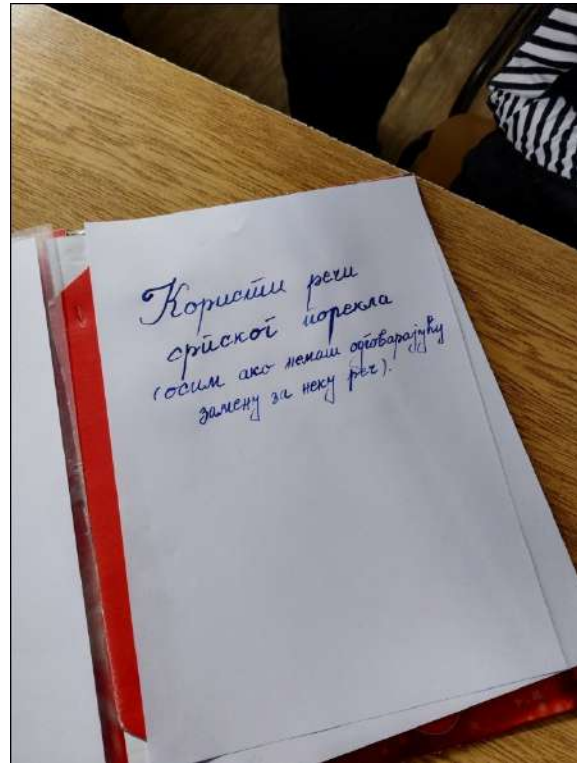 Користи речи
српског порекла
(осим ако немаш одговарајућу
замену за неку реч).